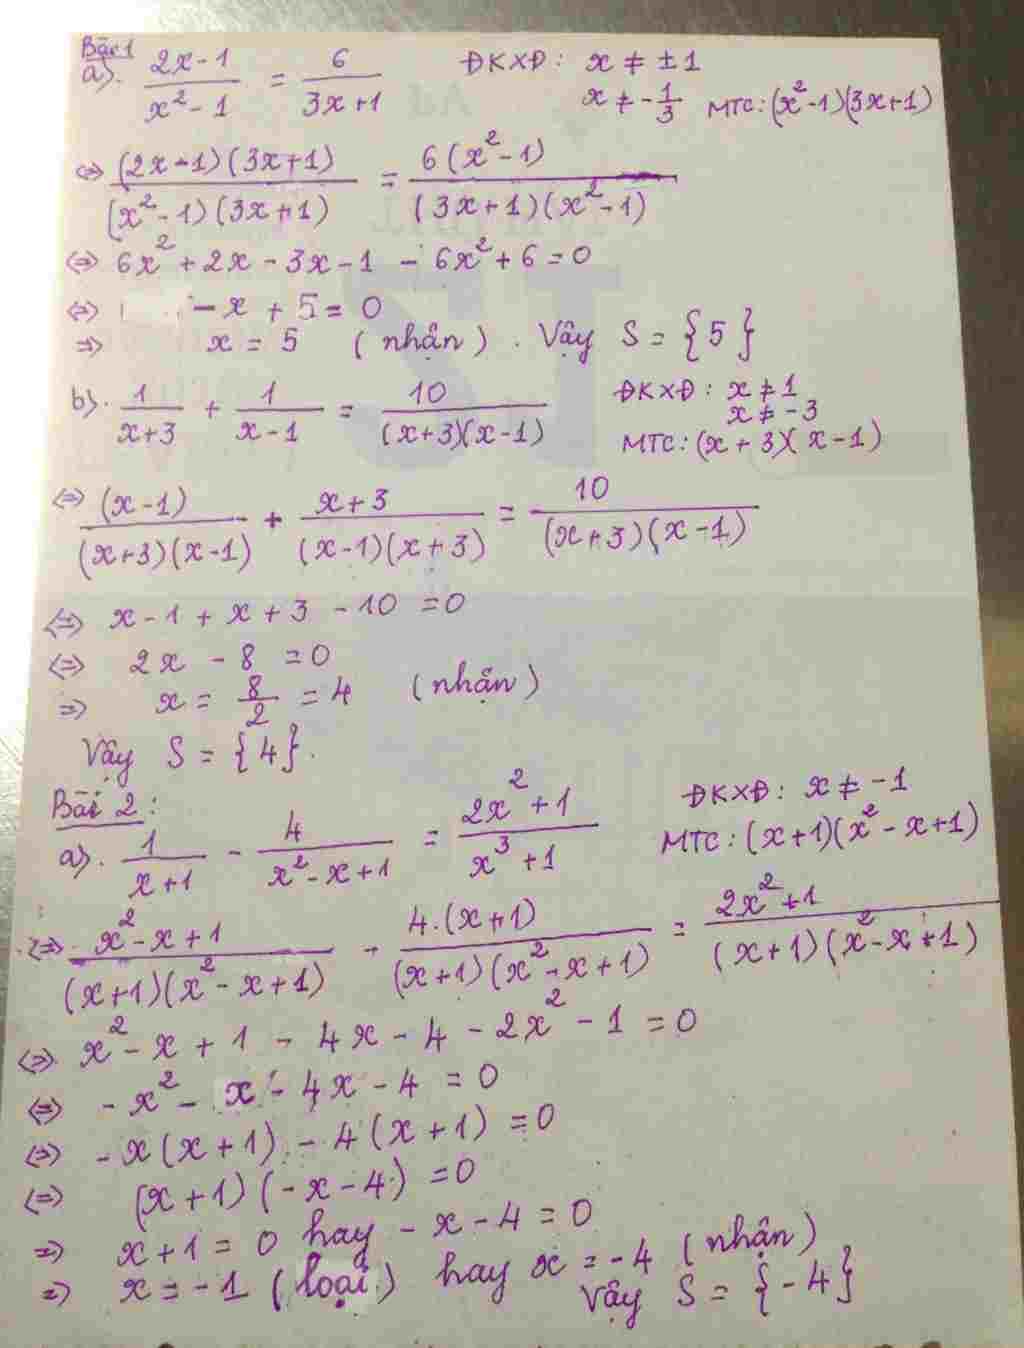 Bài 1
a). (2x-1)/(x²-1) = 6/(3x+1) ĐKXĐ: x ≠ ±1
x ≠ -1/3 MTC: (x²-1)(3x+1)
⇔ (2x-1)(3x+1)/((x²-1)(3x+1)) = 6(x²-1)/((3x+1)(x²-1))
⇔ 6x² + 2x - 3x - 1 - 6x² + 6 = 0
⇔ -x + 5 = 0
⇒ x = 5 (nhận). Vậy S = {5}
b). 1/(x+3) + 1/(x-1) = 10/((x+3)(x-1)) ĐKXĐ: x ≠ 1
x ≠ -3
MTC: (x+3)(x-1)
⇔ (x-1)/((x+3)(x-1)) + (x+3)/((x-1)(x+3)) = 10/((x+3)(x-1))
⇔ x - 1 + x + 3 - 10 = 0
⇔ 2x - 8 = 0
⇒ x = 8/2 = 4 (nhận)
Vậy S = {4}.
Bài 2:
a). 1/(x+1) - 4/(x²-x+1) = (2x²+1)/(x³+1) ĐKXĐ: x ≠ -1
MTC: (x+1)(x²-x+1)
⇔ (x²-x+1)/((x+1)(x²-x+1)) - 4.(x+1)/((x+1)(x²-x+1)) = (2x²+1)/((x+1)(x²-x+1))
⇔ x² - x + 1 - 4x - 4 - 2x² - 1 = 0
⇔ -x² - x - 4x - 4 = 0
⇔ -x(x+1) - 4(x+1) = 0
⇔ (x+1)(-x-4) = 0
⇒ x+1 = 0 hay -x-4 = 0
⇒ x = -1 (loại) hay x = -4 (nhận)
Vậy S = {-4}